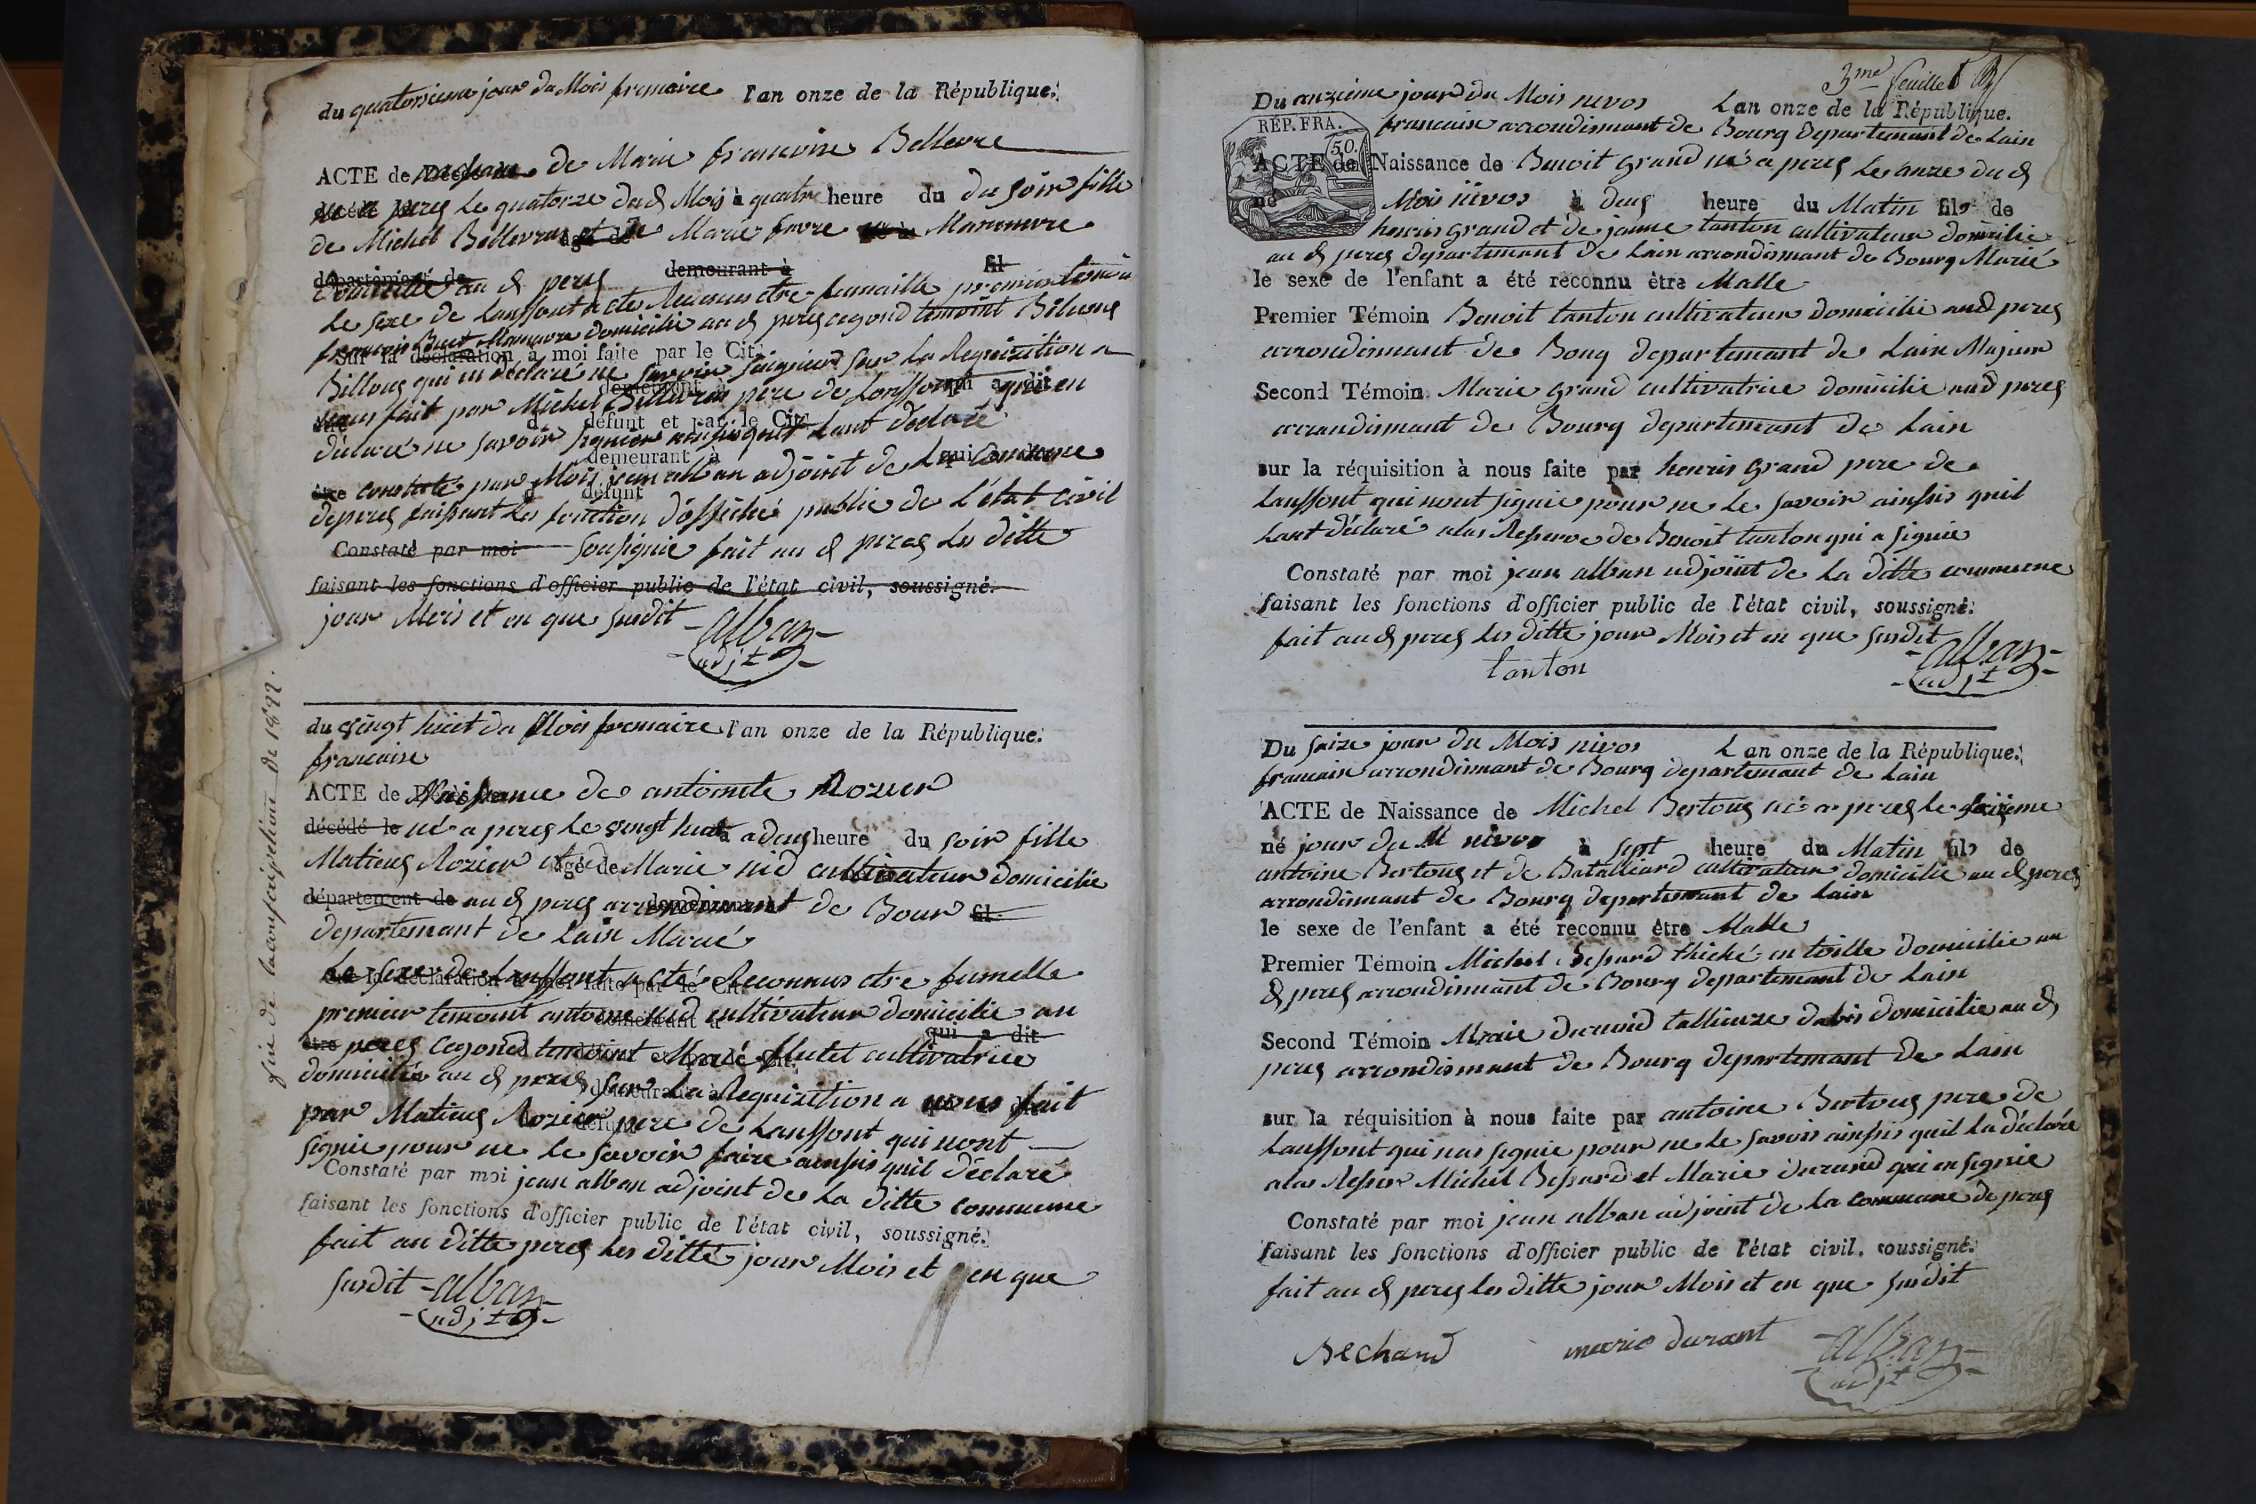 du quatorzieme jour du Mois frimaire l'an onze de la République.
ACTE de Décès de naissance de Marie francoise Bellevre
né a peres le quatorze du d Mois à quatre heure du du soir fille
de Michel Bellevrat et de Marie favre Maneuvre
âgé de
département de demeurant à fil
domicilié au d peres
Le sexe de Lanffont a etes Reconnus etre fumaille premier temoin
francois Buet Maneuvre domicilié au d peres cegond temoint
Sur la déclaration à moi faite par le Cit.
Billoud qui m declaré ne savoir soignier sur la Requizition a
demeurant à qui a dit
nous fait par Michel Bellevrat pere de Lanffont qui en
être d défunt et par le Cit.
déclaré ne savoir signier ainsi quil Lant declaré
demeurant à qui a dit
être constaté par Mois jean alban adjoint de La Commune
d défunt
deperes faissant Les fonction dofficié public de L'état civil
Constaté par moi sousignie fait au d peres Les ditte
faisant les fonctions d'officier public de l'état civil, soussigné.
jour Mois et en que susdit alban
adjt
fin de la conscription de 1822.
du vingt huit du Mois frimaire l'an onze de la République.
francaise
ACTE de Décès Naissance de antoinete Rozier
décédé le né a peres le vingt huit à a deux heure du soir fille
Matieus Rozier et de âgé de Marie nid cultivateur domicilié
département de au d peres arrondimant de Bour fil
demeurant à
departemant de Lain Marié
Le sexe de Lanffont a eté Reconnus etre fumelle
Sur la déclaration à moi faite par le Cit.
premier temoint antoine nid cultivateur domicilié au
demeurant à qui a dit
être peres cegond temoint Marie flutet cultivatrice
domicilié au d peres sur La Requizition a nous fait
demeurant à
par Matieus Rozier pere de Lanffont qui nont
défunt
signie pour ne le savoir faire ainssis quil déclaré
Constaté par moi jean alban adjoint de La ditte commune
faisant les fonctions d'officier public de l'état civil, soussigné.
fait au ditte peres les ditte jour Mois et en que
susdit alban
adjt
3me feuillet
Du onzieme jour du Mois nivos L an onze de la République.
RÉP. FRA.
50.
francaise arrondimant de Bourg departemant de Lain
ACTE de Naissance de Benoit Grand né a peres Le onze du d
né Mois nivos à deus heure du Matin fils de
henris Grand et de jeanne tanton cultivateur domicilié
au d peres departemant de Lain arrondimant de Bourg Marié
le sexe de l'enfant a été reconnu être Malle
Premier Témoin Benoit tanton cultivateur domicilié aud peres
arrondimant de Bourg departemant de Lain Majeur
Second Témoin Marie Grand cultivatrice domicilié aud peres
arrondimant de Bourg departemant de Lain
sur la réquisition à nous faite par henris Grand pere de
Lanffont qui nont signie pour ne Le savoir ainssis quil
Lant déclaré a las Resserve de Benoit tanton qui a signie
Constaté par moi jean alban adjoint de La ditte commune
faisant les fonctions d'officier public de l'état civil, soussigné.
fait au d peres les ditte jour Mois et en que susdit
tanton alban
adjt
Du seize jour du Mois nivos L an onze de la République.
francaise arrondimant de Bourg departemant de Lain
ACTE de Naissance de Michel Bertoug né a peres Le seizieme
né jour du d nivos à sept heure du Matin fils de
antoine Bertoug et de Batalliard cultivateur domicilié au d peres
arrondimant de Bourg departemant de Lain
le sexe de l'enfant a été reconnu être Malle
Premier Témoin Michel Bessard thiché en toille domicilié au
d peres arrondimant de Bourg departemant de Lain
Second Témoin Marie durand tallieuze dabis domicilié au d
peres arrondimant de Bourg departemant de Lain
sur la réquisition à nous faite par antoine Bertoug pere de
Lanffont qui nas signie pour ne le savoir ainssis quil La déclaré
a las Resserve Michel Bessard et Marie durand qui en signie
Constaté par moi jean alban adjoint de la commune de peres
faisant les fonctions d'officier public de l'état civil, soussigné.
fait au d peres les ditte jour Mois et en que susdit
Bechard marie durant alban
adjt